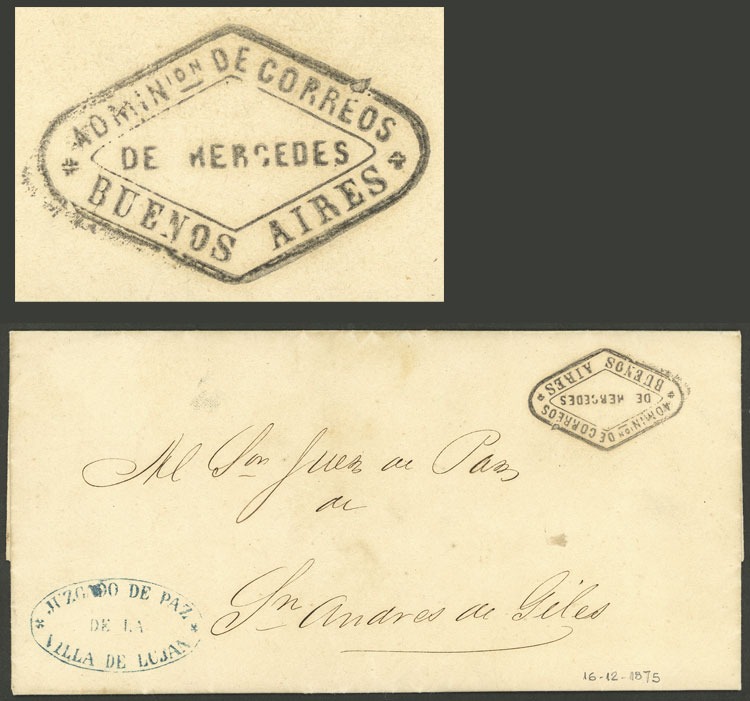 ADMIN<sup>ION</sup> DE CORREOS
DE MERCEDES
BUENOS AIRES
ADMIN<sup>ION</sup> DE CORREOS
DE MERCEDES
BUENOS AIRES
Al Sor Juez de Paz
de
Sn Andres de Giles
JUZGADO DE PAZ
DE LA
VILLA DE LUJAN
16-12-1875